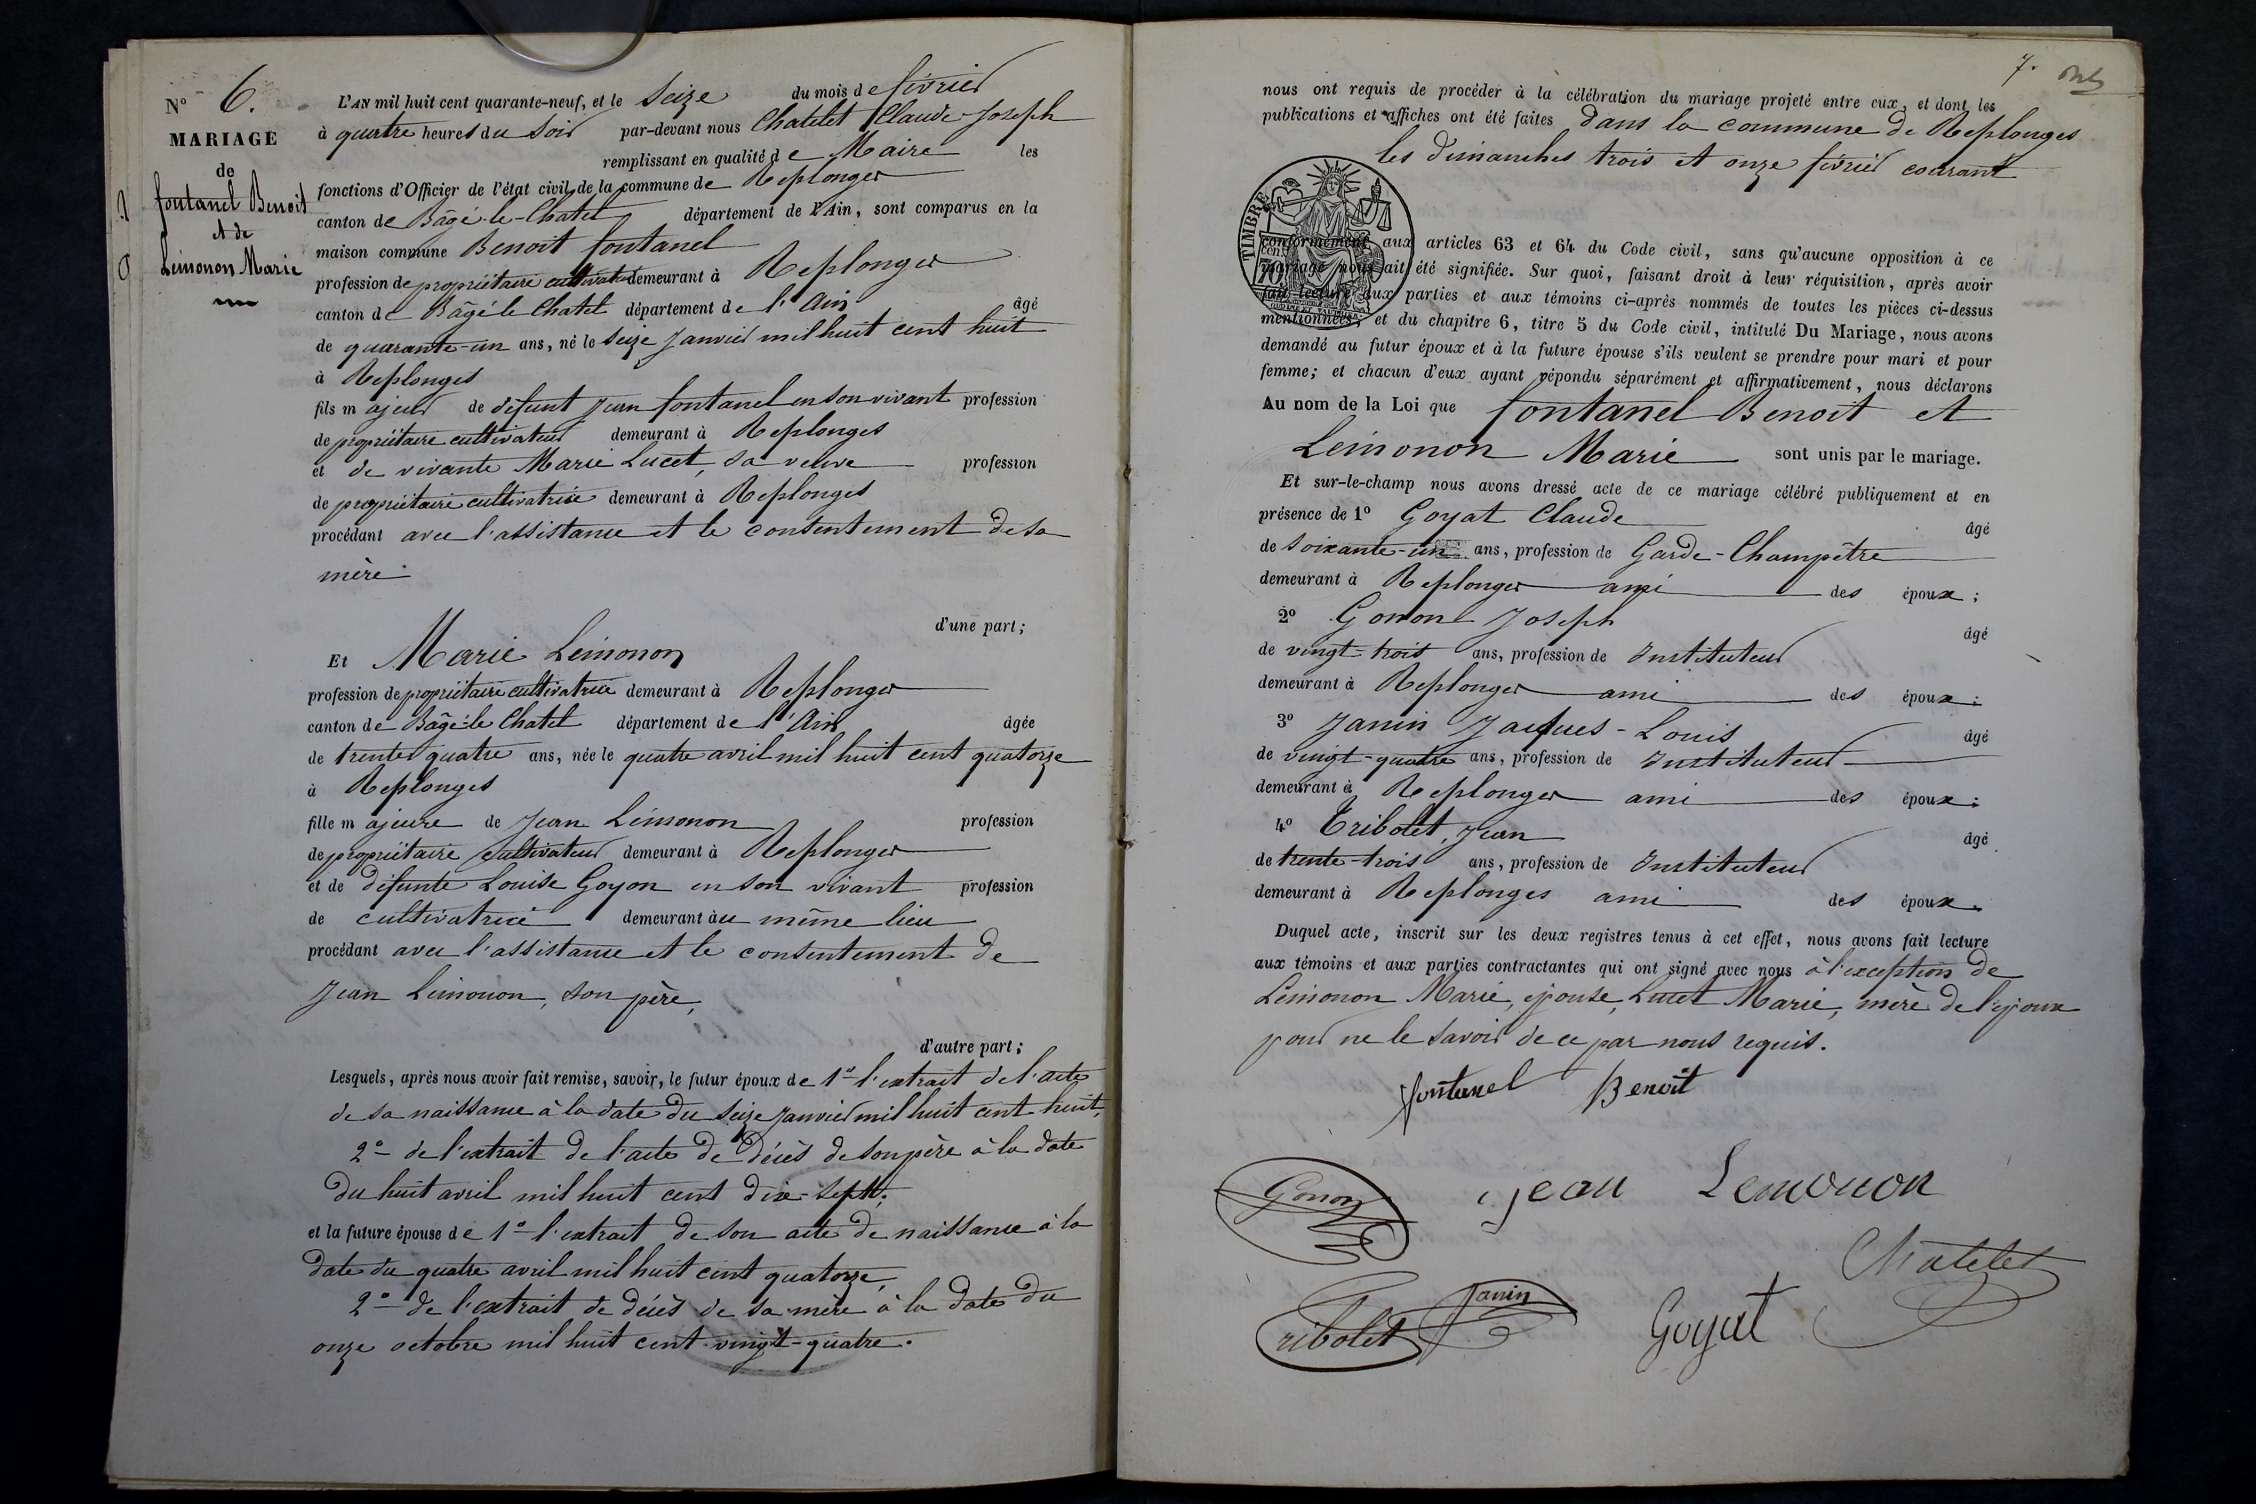 N° 6.
MARIAGE
de
fontanel Benoit
et de
Lemonon Marie
L'AN mil huit cent quarante-neuf, et le Seize du mois de février
à quatre heures du soir par-devant nous Chatelet Claude-Joseph
remplissant en qualité de Maire les
fonctions d'Officier de l'état civil de la commune de Replonges
canton de Bâgé-le-Chatel département de l'Ain, sont comparus en la
maison commune Benoit fontanel
profession de propriétaire cultivateur demeurant à Replonges
canton de Bâgé le Chatel département de l'Ain âgé
de quarante-un ans, né le seize janvier mil huit cent huit
à Replonges
fils majeur de défunt Jean fontanel en son vivant profession
de propriétaire cultivateur demeurant à Replonges
et de vivante Marie Lucet, sa veuve profession
de propriétaire cultivatrice demeurant à Replonges
procédant avec l'assistance et le consentement de sa
mère.
d'une part;
Et Marie Lemonon
profession de propriétaire cultivatrice demeurant à Replonges
canton de Bâgé-le Chatel département de l'Ain âgée
de trente quatre ans, née le quatre avril mil huit cent quatorze
à Replonges
fille majeure de Jean Lemonon profession
de propriétaire cultivateur demeurant à Replonges
et de défunte Louise Goyon en son vivant profession
de cultivatrice demeurant au même lieu
procédant avec l'assistance et le consentement de
Jean Lemonon, son père,
d'autre part;
Lesquels, après nous avoir fait remise, savoir, le futur époux de 1° l'extrait de l'acte
de sa naissance à la date du seize janvier mil huit cent huit,
2° de l'extrait de l'acte de décès de son père à la date
du huit avril mil huit cent dix-sept;
et la future épouse de 1° l'extrait de son acte de naissance à la
date du quatre avril mil huit cent quatorze,
2° de l'extrait de décès de sa mère à la date du
onze octobre mil huit cent vingt-quatre.
7.
nous ont requis de procéder à la célébration du mariage projeté entre eux, et dont les
publications et affiches ont été faites dans la commune de Replonges
les dimanches trois et onze février courant
TIMBRE
conformément aux articles 63 et 64 du Code civil, sans qu'aucune opposition à ce
mariage nous ait été signifiée. Sur quoi, faisant droit à leur réquisition, après avoir
fait lecture aux parties et aux témoins ci-après nommés de toutes les pièces ci-dessus
mentionnées, et du chapitre 6, titre 5 du Code civil, intitulé Du Mariage, nous avons
demandé au futur époux et à la future épouse s'ils veulent se prendre pour mari et pour
femme; et chacun d'eux ayant répondu séparément et affirmativement, nous déclarons
Au nom de la Loi que fontanel Benoit et
Lemonon Marie sont unis par le mariage.
Et sur-le-champ nous avons dressé acte de ce mariage célébré publiquement et en
présence de 1° Goyat Claude âgé
de soixante-un ans, profession de Garde-Champêtre
demeurant à Replonges ami des époux;
2° Gonon Joseph âgé
de vingt-trois ans, profession de Instituteur
demeurant à Replonges ami des époux;
3° Janin Jacques-Louis âgé
de vingt-quatre ans, profession de Instituteur
demeurant à Replonges ami des époux;
4° Tribolet, Jean âgé
de trente-trois ans, profession de Instituteur
demeurant à Replonges ami des époux.
Duquel acte, inscrit sur les deux registres tenus à cet effet, nous avons fait lecture
aux témoins et aux parties contractantes qui ont signé avec nous à l'exception de
Lemonon Marie, épouse, Lucet Marie, mère de l'époux
pour ne le savoir de ce par nous requis.
fontanel Benoit
Gonon
Jean Lemonon
Chatelet
Tribolet
Janin
Goyat